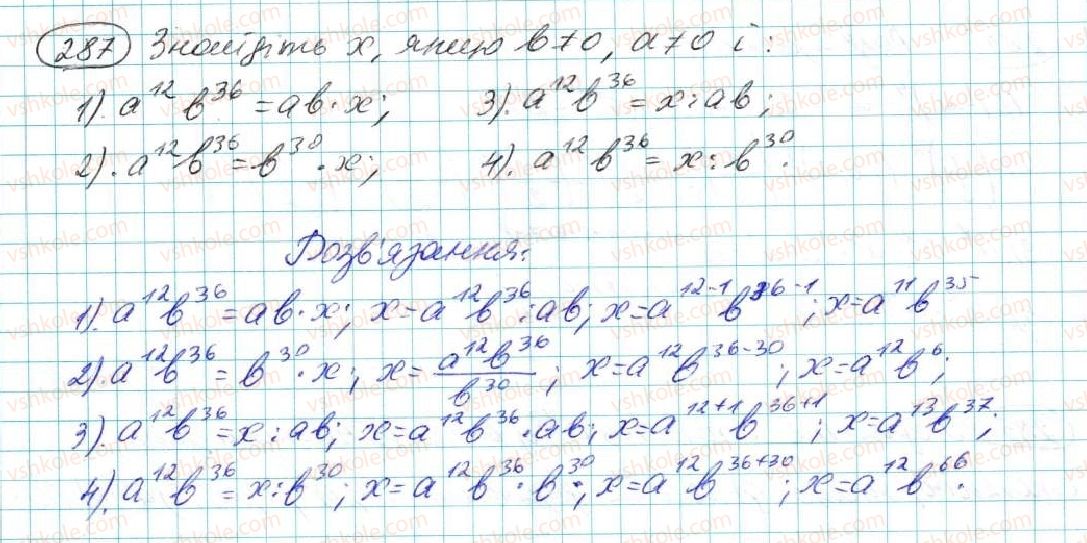 287 Знайдіть x, якщо b≠0, a≠0 і:
1). a¹²b³⁶ = ab·x; 3). a¹²b³⁶ = x:ab;
2). a¹²b³⁶ = b³⁰·x; 4). a¹²b³⁶ = x:b³⁰.
Розв'язання:
1). a¹²b³⁶ = ab·x; x = a¹²b³⁶:ab; x = a¹²⁻¹b³⁶⁻¹; x = a¹¹b³⁵
2). a¹²b³⁶ = b³⁰·x; x = a¹²b³⁶/b³⁰; x = a¹²b³⁶⁻³⁰; x = a¹²b⁶;
3). a¹²b³⁶ = x:ab; x = a¹²b³⁶·ab; x = a¹²⁺¹b³⁶⁺¹; x = a¹³b³⁷;
4). a¹²b³⁶ = x:b³⁰; x = a¹²b³⁶·b³⁰; x = a¹²b³⁶⁺³⁰; x = a¹²b⁶⁶.